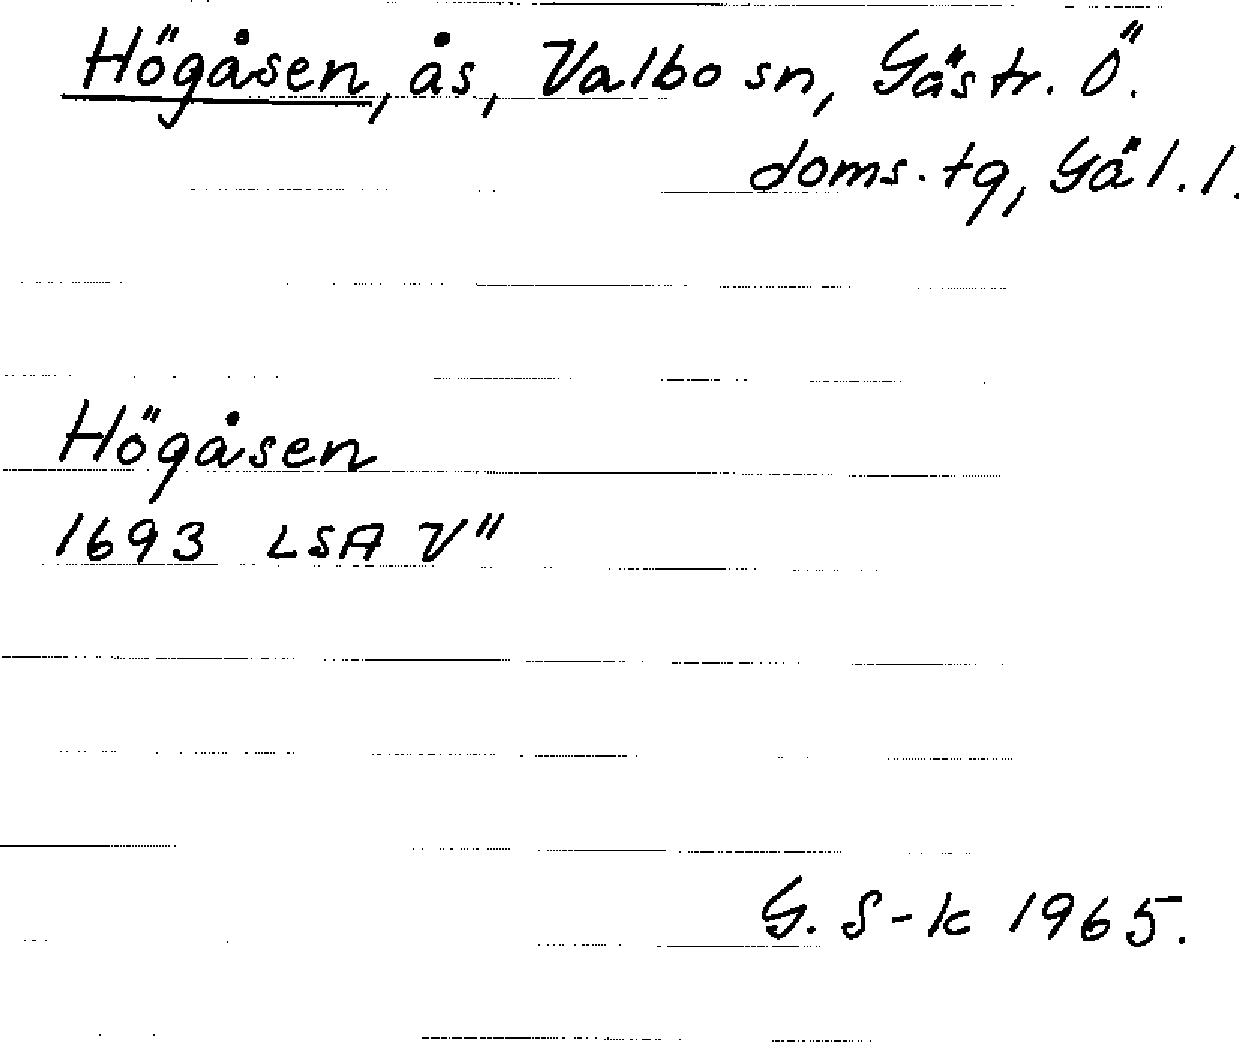 Högåsen, ås, Valbo sn, Gästr. Ö.
doms. tg, Gäl. l.
Högåsen
1693 LSA V"
G. S-k 1965.